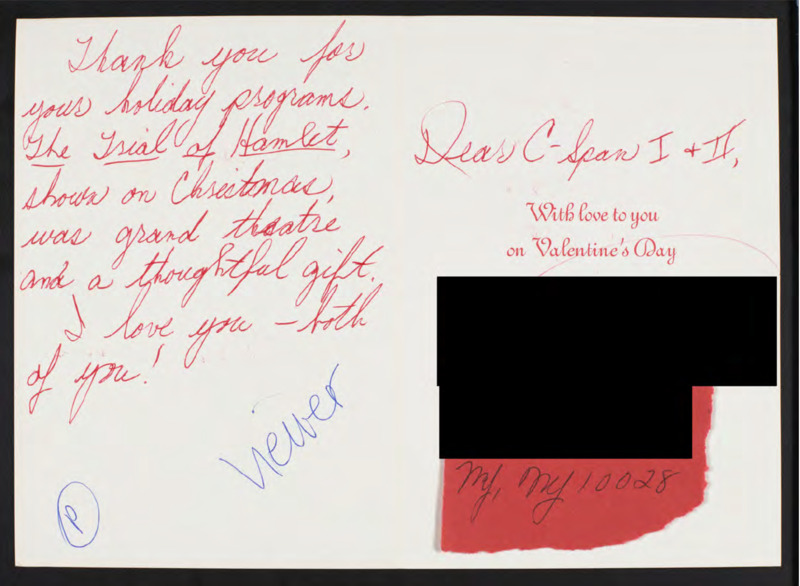 Thank you for
your holiday programs.
The Trial of Hamlet,
shown on Christmas,
was grand theatre
and a thoughtful gift.
I love you – both
of you!
Viewer
P
Dear C-Span I + II,
With love to you
on Valentine's Day
NY, NY 10028